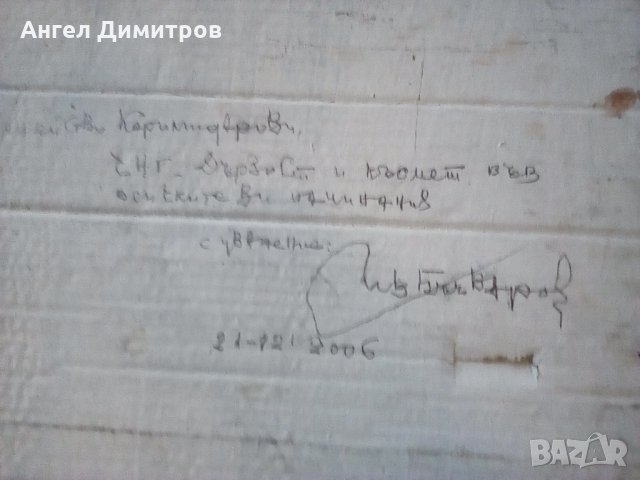 Ангел Димитров
ЧНГ. Бързост и късмет във
всичките Ви начинания
с уважение:
21-12 2006
BAZAR